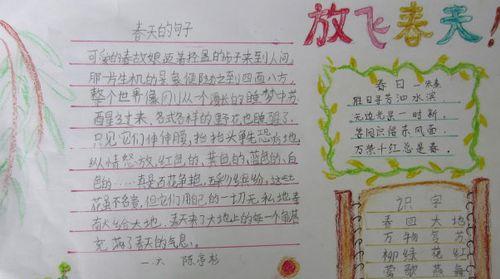 放飞春天！
春天的句子
可爱的春姑娘迈着轻盈的步子来到人间，
那一片生机的景象便随之到四面八方，
整个世界像刚从一个漫长的睡梦中苏
醒过来，各式各样的野花也睡醒了。
只见它们伸伸腰，抬抬头，争先恐后地，
纵情怒放，红色的、黄色的、蓝色的、白
色的……真是百花争艳，五彩缤纷，这些
花虽不名贵，但它们用自己的一切无私地奉
献给大地，春天来了大地上的每一个角落
充满了春天的气息。
陈亭杉
春日 —朱熹
胜日寻芳泗水滨
无边光景一时新
等闲识得东风面，
万紫千红总是春。
识字
春回大地
万物复苏
柳绿花红
莺歌燕舞